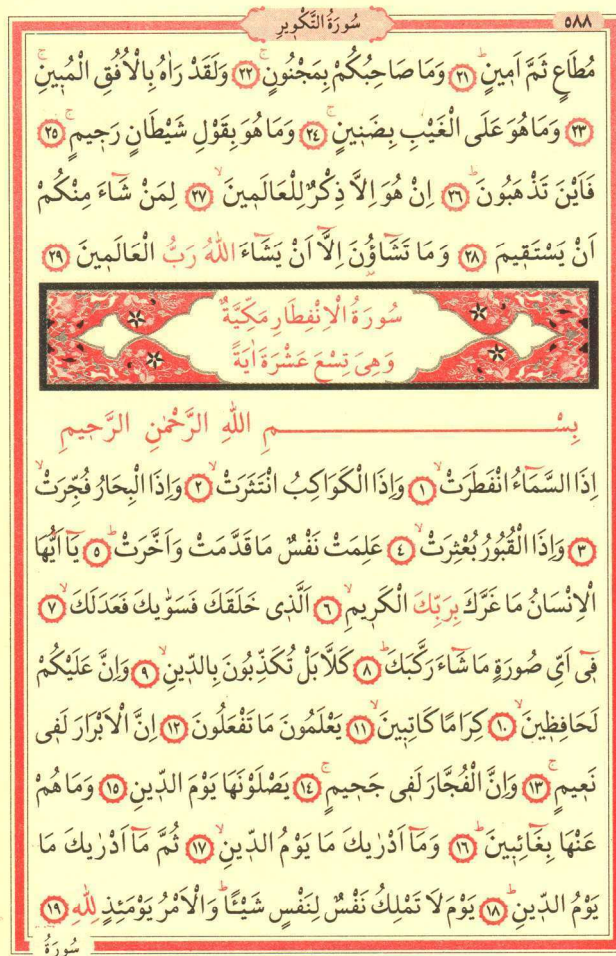 ٥٨٨ سُورَةُ التَّكْوِيرِ
مُطَاعٍ ثَمَّ اَمِينٍ ۜ ٢١ وَمَا صَاحِبُكُمْ بِمَجْنُونٍ ۚ ٢٢ وَلَقَدْ رَاٰهُ بِالْاُفُقِ الْمُبِينِ ۚ
٢٣ وَمَا هُوَ عَلَى الْغَيْبِ بِضَنِينٍ ۚ ٢٤ وَمَا هُوَ بِقَوْلِ شَيْطَانٍ رَجِيمٍ ۙ ٢٥
فَاَيْنَ تَذْهَبُونَ ۜ ٢٦ اِنْ هُوَ اِلَّا ذِكْرٌ لِلْعَالَمِينَ ۙ ٢٧ لِمَنْ شَٓاءَ مِنْكُمْ
اَنْ يَسْتَقِيمَ ٢٨ وَمَا تَشَٓاؤُ۫نَ اِلَّٓا اَنْ يَشَٓاءَ اللّٰهُ رَبُّ الْعَالَمِينَ ٢٩
سُورَةُ الْاِنْفِطَارِ مَكِّيَّةٌ
وَهِىَ تِسْعَ عَشْرَةَ اٰيَةً
بِسْمِ اللّٰهِ الرَّحْمٰنِ الرَّحِيمِ
اِذَا السَّمَٓاءُ انْفَطَرَتْ ۙ ١ وَاِذَا الْكَوَاكِبُ انْتَثَرَتْ ۙ ٢ وَاِذَا الْبِحَارُ فُجِّرَتْ ۙ
٣ وَاِذَا الْقُبُورُ بُعْثِرَتْ ۙ ٤ عَلِمَتْ نَفْسٌ مَا قَدَّمَتْ وَاَخَّرَتْ ۜ ٥ يَٓا اَيُّهَا
الْاِنْسَانُ مَا غَرَّكَ بِرَبِّكَ الْكَرِيمِ ۙ ٦ اَلَّذِى خَلَقَكَ فَسَوّٰيكَ فَعَدَلَكَ ۙ ٧
فِٓى اَىِّ صُورَةٍ مَا شَٓاءَ رَكَّبَكَ ۜ ٨ كَلَّا بَلْ تُكَذِّبُونَ بِالدِّينِ ۙ ٩ وَاِنَّ عَلَيْكُمْ
لَحَافِظِينَ ۙ ١٠ كِرَامًا كَاتِبِينَ ۙ ١١ يَعْلَمُونَ مَا تَفْعَلُونَ ١٢ اِنَّ الْاَبْرَارَ لَفِى
نَعِيمٍ ۚ ١٣ وَاِنَّ الْفُجَّارَ لَفِى جَحِيمٍ ۚ ١٤ يَصْلَوْنَهَا يَوْمَ الدِّينِ ١٥ وَمَا هُمْ
عَنْهَا بِغَٓائِبِينَ ۜ ١٦ وَمَٓا اَدْرٰيكَ مَا يَوْمُ الدِّينِ ۙ ١٧ ثُمَّ مَٓا اَدْرٰيكَ مَا
يَوْمُ الدِّينِ ۜ ١٨ يَوْمَ لَا تَمْلِكُ نَفْسٌ لِنَفْسٍ شَيْـًٔا ۜ وَالْاَمْرُ يَوْمَئِذٍ لِلّٰهِ ١٩
سُورَةُ